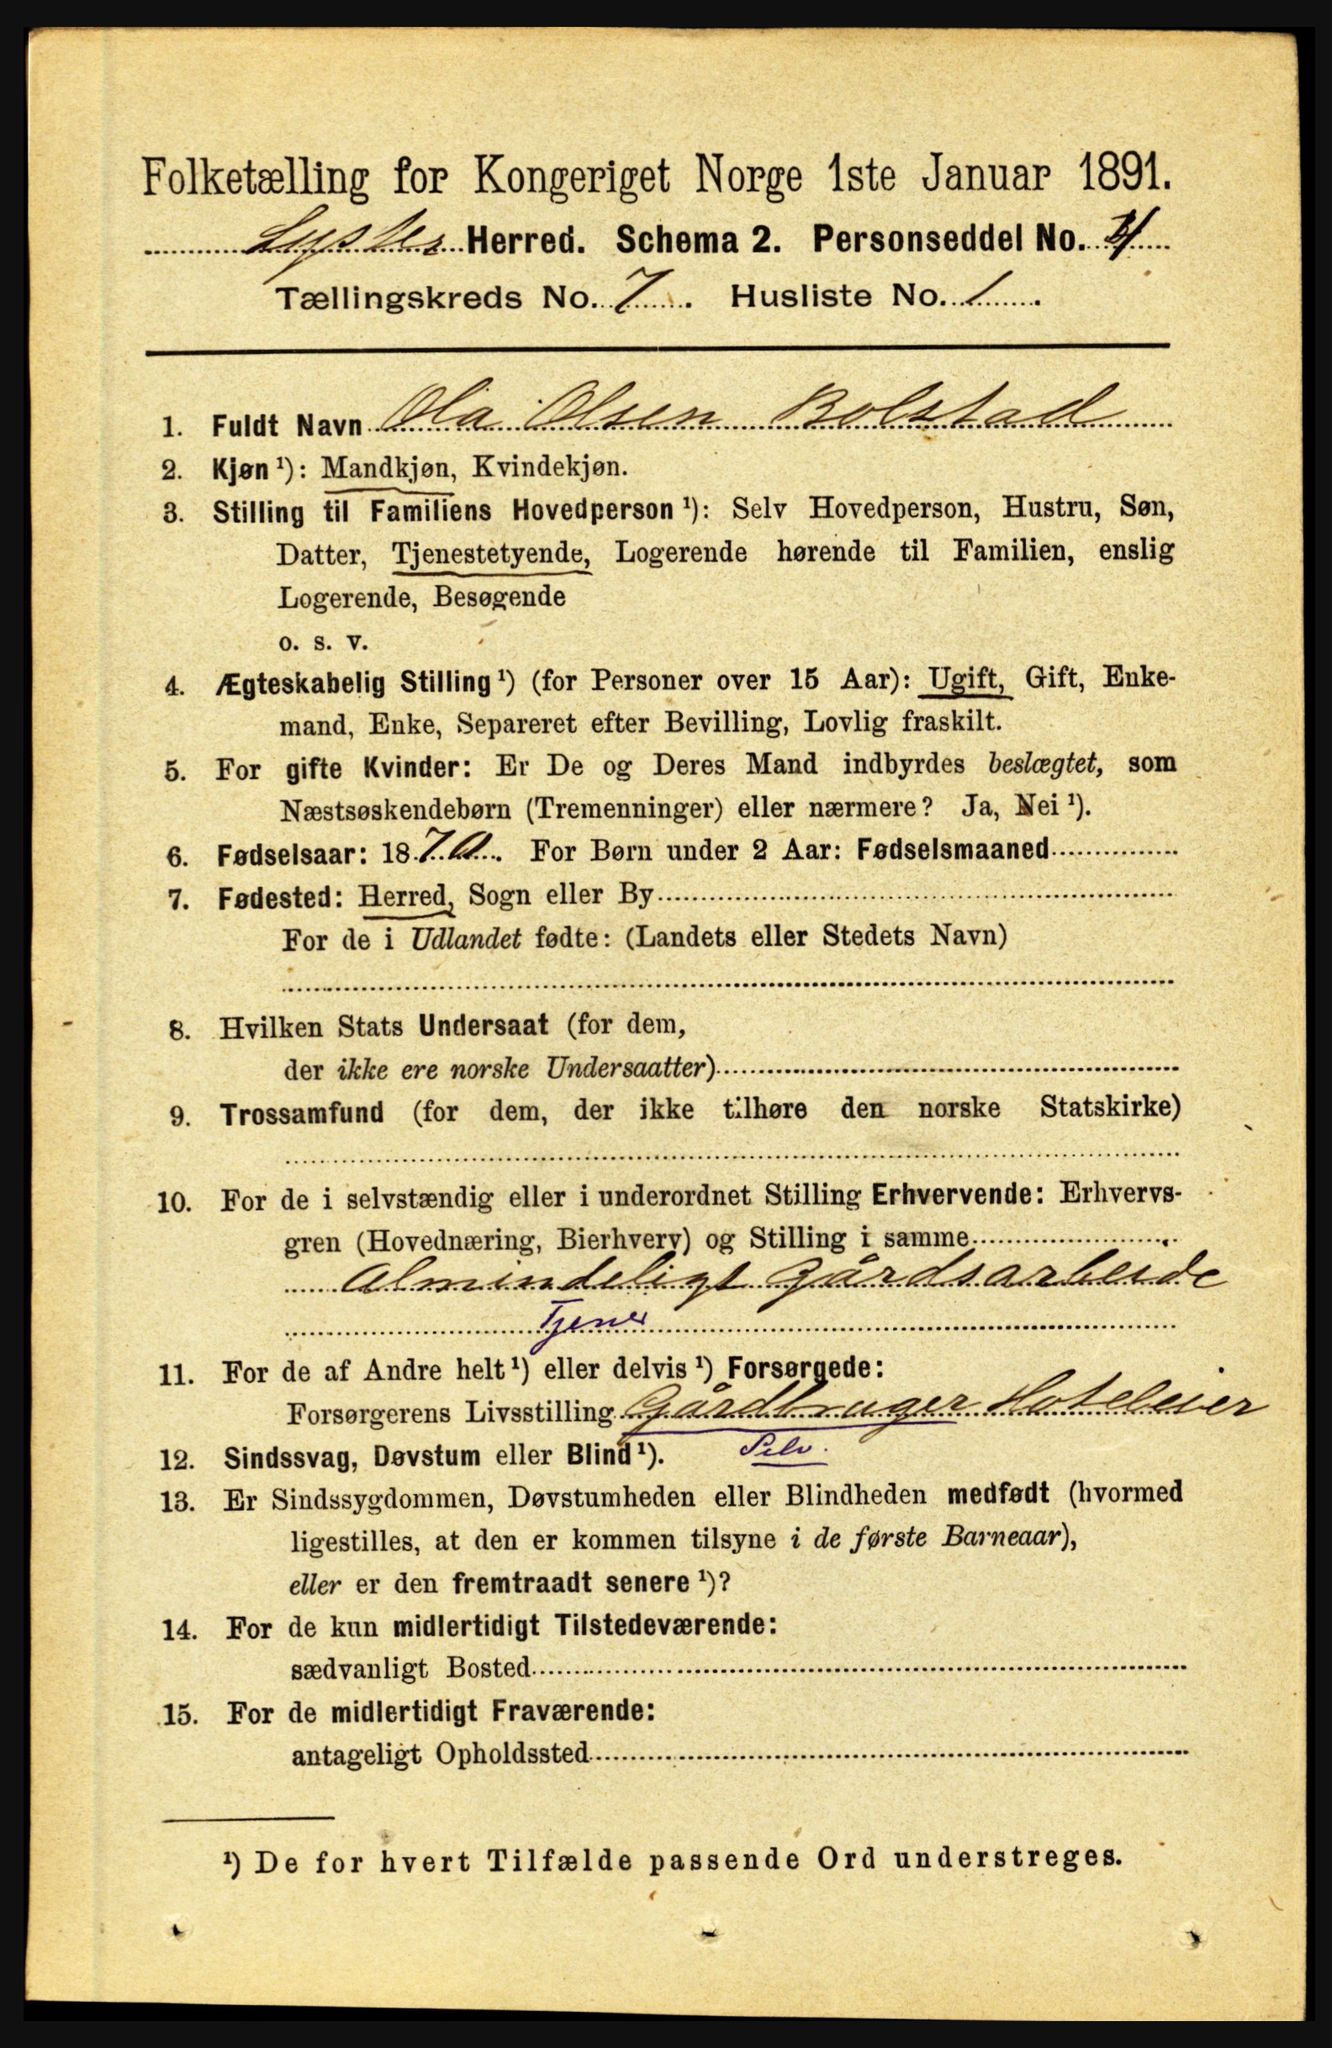 Folketælling for Kongeriget Norge 1ste Januar 1891.
Lyster Herred. Schema 2. Personseddel No.
Tællingskreds No. 7. Husliste No. 1.
1. Fuldt Navn Ola Olsen Bolstad
2. Kjøn ¹): Mandkjøn, Kvindekjøn.
3. Stilling til Familiens Hovedperson ¹): Selv Hovedperson, Hustru, Søn,
Datter, Tjenestetyende, Logerende hørende til Familien, enslig
Logerende, Besøgende
o. s. v.
4. Ægteskabelig Stilling ¹) (for Personer over 15 Aar): Ugift, Gift, Enke-
mand, Enke, Separeret efter Bevilling, Lovlig fraskilt.
5. For gifte Kvinder: Er De og Deres Mand indbyrdes beslægtet, som
Næstsøskendebørn (Tremenninger) eller nærmere? Ja, Nei ¹).
6. Fødselsaar: 1870. For Børn under 2 Aar: Fødselsmaaned
7. Fødested: Herred, Sogn eller By
For de i Udlandet fødte: (Landets eller Stedets Navn)
8. Hvilken Stats Undersaat (for dem,
der ikke ere norske Undersaatter)
9. Trossamfund (for dem, der ikke tilhøre den norske Statskirke)
10. For de i selvstændig eller i underordnet Stilling Erhvervende: Erhvervs-
gren (Hovednæring, Bierhverv) og Stilling i samme
Almindeligt Gårdsarbeide
Tjener
11. For de af Andre helt ¹) eller delvis ¹) Forsørgede:
Forsørgerens Livsstilling Gårdbruger Hoteleier
12. Sindssvag, Døvstum eller Blind ¹). Selv.
13. Er Sindssygdommen, Døvstumheden eller Blindheden medfødt (hvormed
ligestilles, at den er kommen tilsyne i de første Barneaar),
eller er den fremtraadt senere ¹)?
14. For de kun midlertidigt Tilstedeværende:
sædvanligt Bosted
15. For de midlertidigt Fraværende:
antageligt Opholdssted
¹) De for hvert Tilfælde passende Ord understreges.